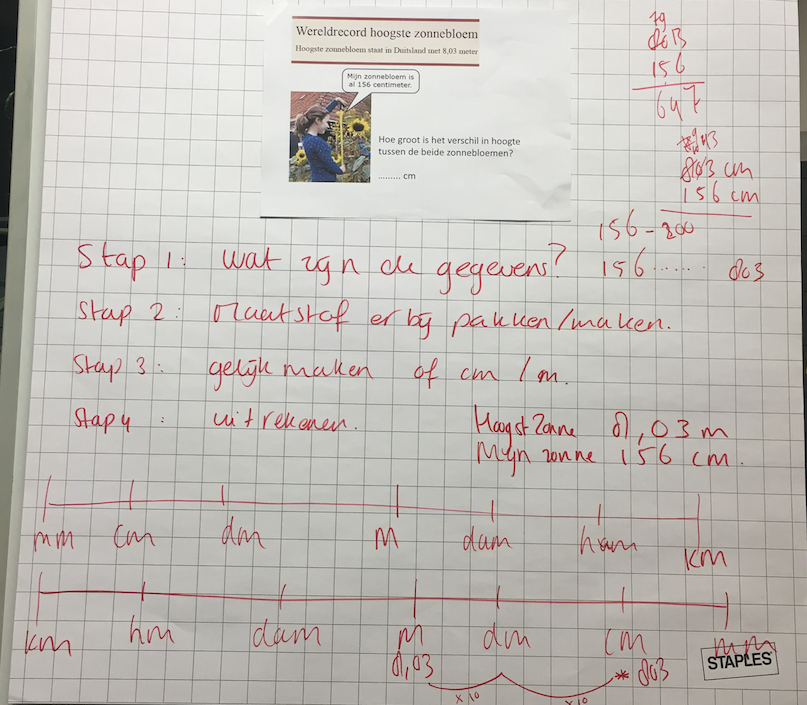 Wereldrecord hoogste zonnebloem
Hoogste zonnebloem staat in Duitsland met 8,03 meter
Mijn zonnebloem is
al 156 centimeter.
Hoe groot is het verschil in hoogte
tussen de beide zonnebloemen?
......... cm
79
803
156
647
803 cm
156 cm
156 - 200
156 ...... 803
Stap 1: wat zijn de gegevens?
Stap 2: Maatstaf erbij pakken/maken.
Stap 3: gelijk maken of cm / m.
Stap 4 : uitrekenen.
Hoogst Zonne 8,03 m
Mijn zonne 156 cm.
mm cm dm M dam ham km
km hm dam M dm cm mm
8,03 * 803
x10 x10
STAPLES